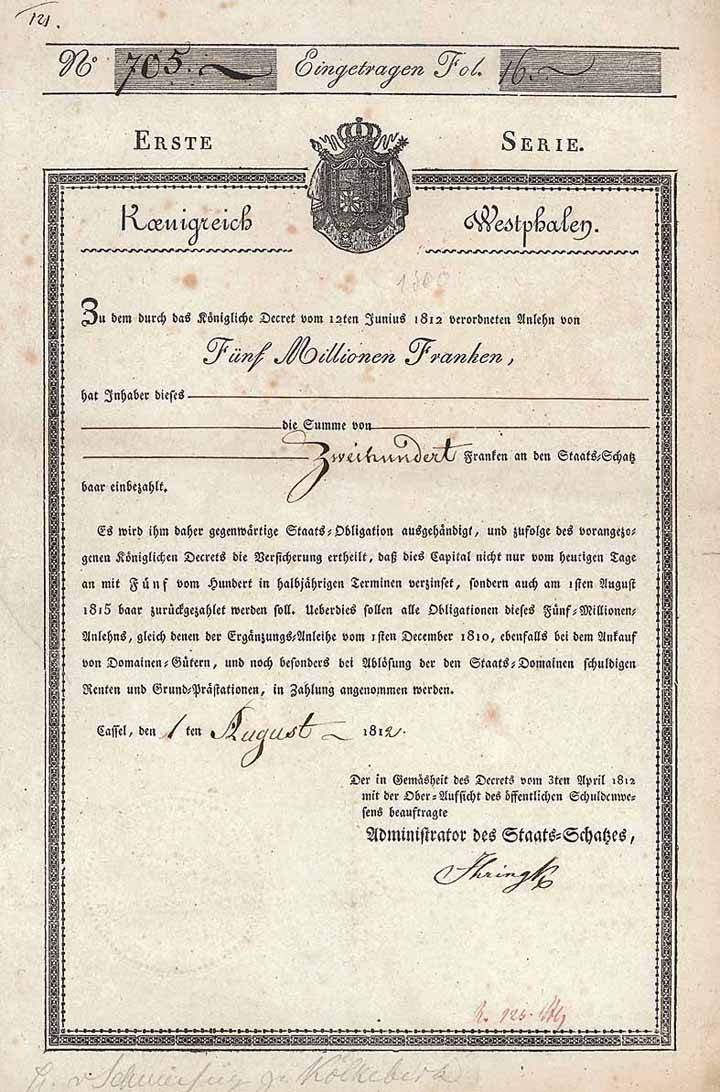 121.
No 705. Eingetragen Fol. 16.
ERSTE SERIE.
Kœnigreich Westphalen.
1500
Zu dem durch das Königliche Decret vom 12ten Junius 1812 verordneten Anlehn von
Fünf Millionen Franken,
hat Inhaber dieses
die Summe von
Zweihundert Franken an den Staats-Schatz
baar einbezahlt.
Es wird ihm daher gegenwärtige Staats-Obligation ausgehändigt, und zufolge des vorangezo-
genen Königlichen Decrets die Versicherung ertheilt, daß dies Capital nicht nur vom heutigen Tage
an mit Fünf vom Hundert in halbjährigen Terminen verzinset, sondern auch am 1sten August
1815 baar zurückgezahlet werden soll. Ueberdies sollen alle Obligationen dieses Fünf-Millionen-
Anlehns, gleich denen der Ergänzungs-Anleihe vom 1sten December 1810, ebenfalls bei dem Ankauf
von Domainen-Gütern, und noch besonders bei Ablösung der den Staats-Domainen schuldigen
Renten und Grund-Prästationen, in Zahlung angenommen werden.
Cassel, den 1 ten August 1812.
Der in Gemäsheit des Decrets vom 3ten April 1812
mit der Ober-Aufsicht des öffentlichen Schuldenwe-
sens beauftragte
Administrator des Staats-Schatzes,